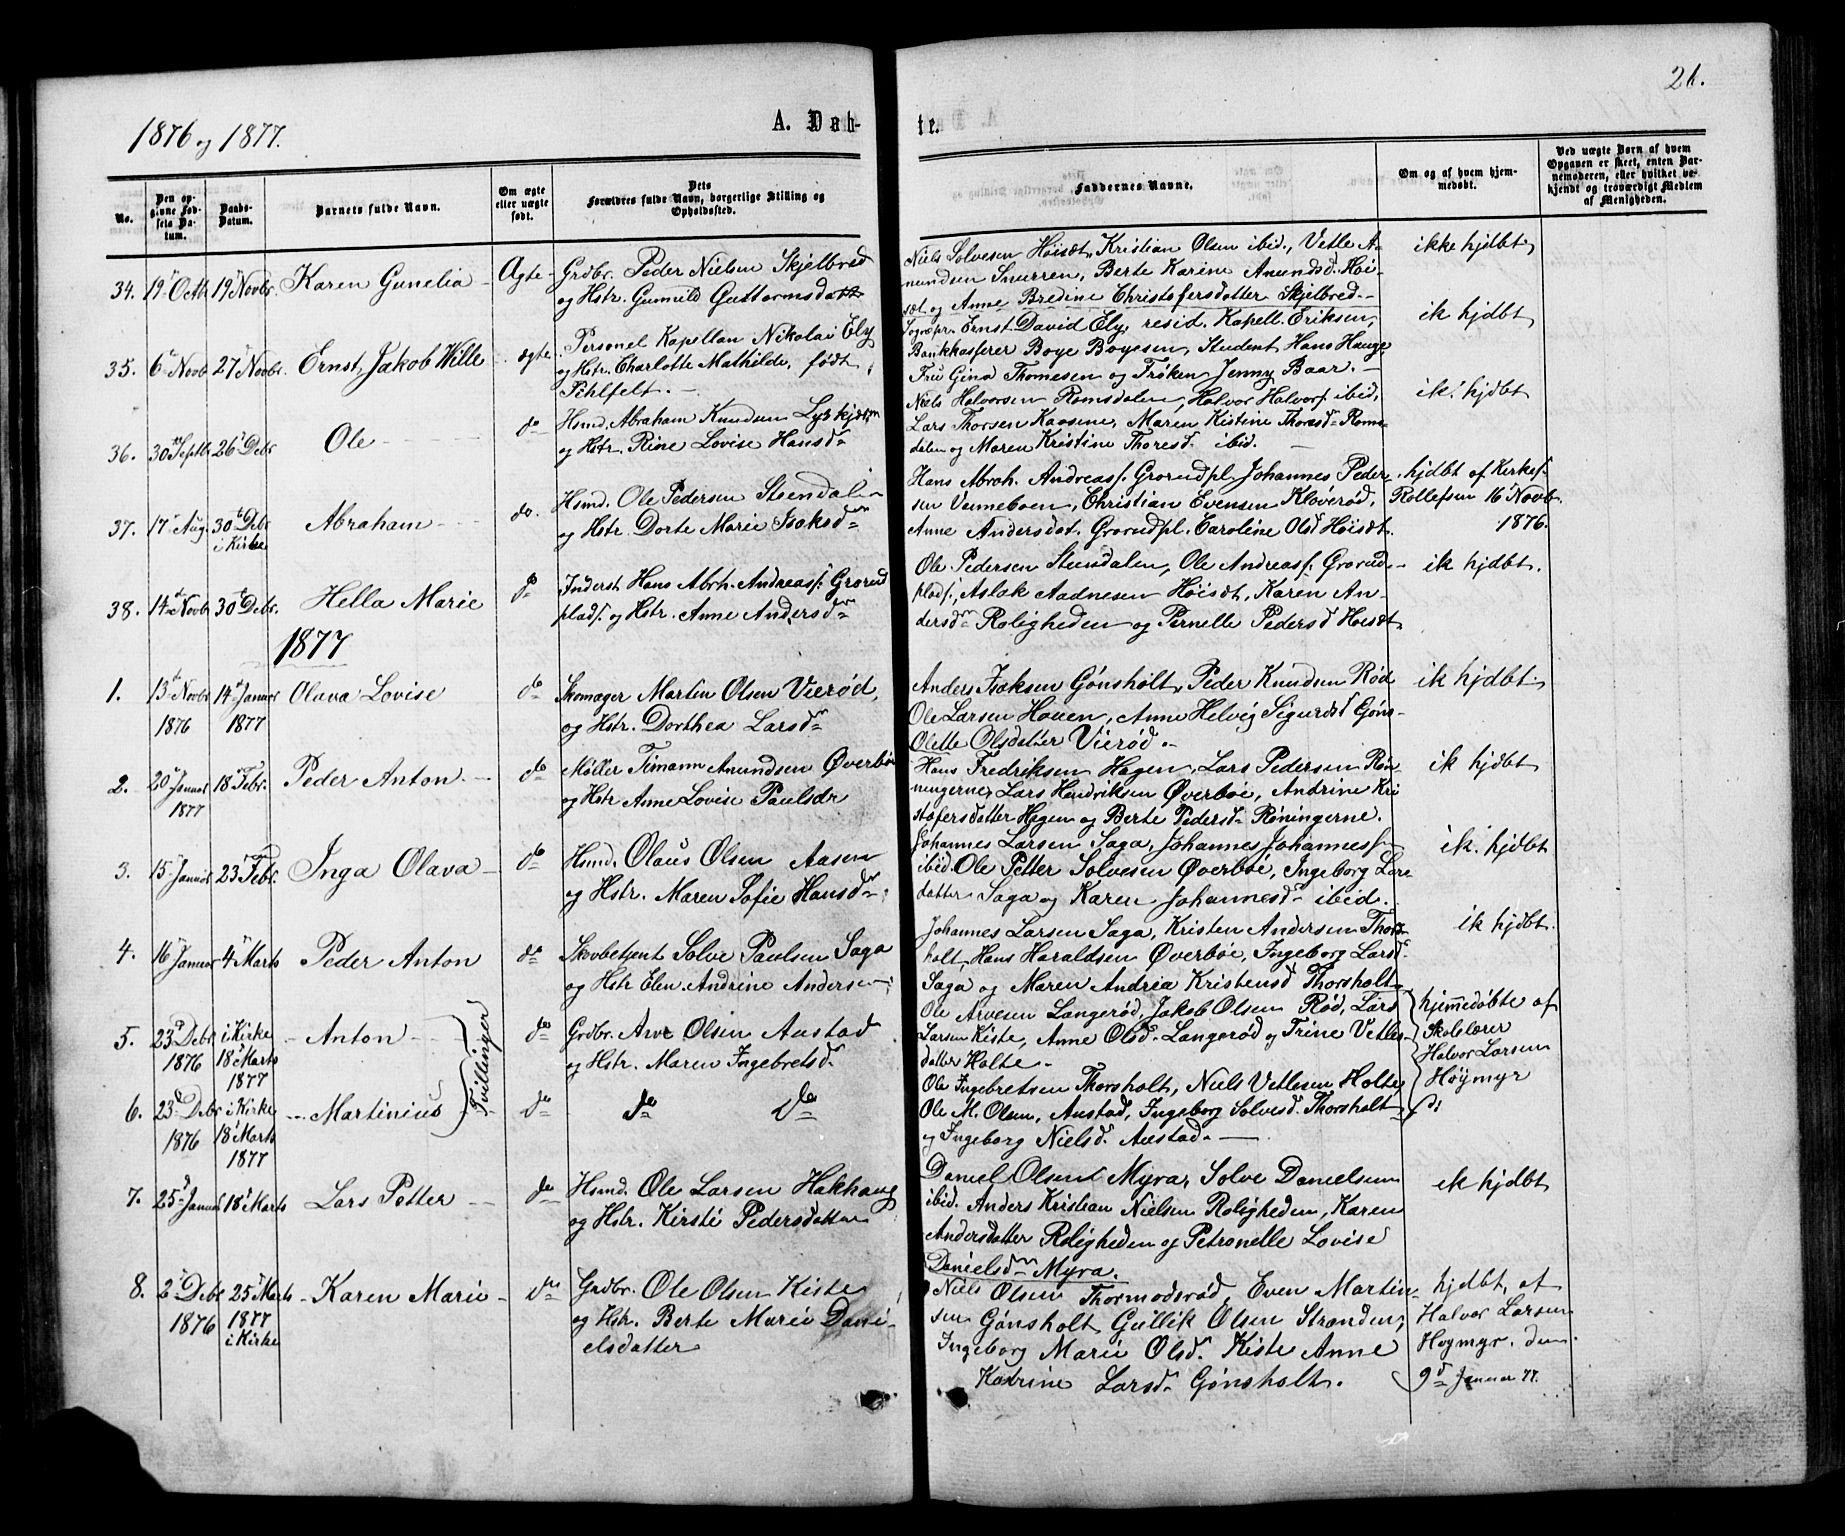 21.
1876 og 1877.
A. Døb-
te.
No.
Den op-
givne Fød-
sels Da-
tum.
Daabs-
Datum.
Barnets fulde Navn.
Om ægte
eller uægte
født.
Dets
Forældres fulde Navn, borgerlige Stilling og
Opholdssted.
Faddernes Navne.
Om og af hvem hjem-
medøbt.
Ved uægte Børn af hvem
Opgaven er skeet, enten Bar-
nemoderen, eller hvilket be-
kjendt og troværdigt Medlem
af Menigheden.
34. 19 Octb 19 Novbr. Karen Gunelia Ægte
Grdbr. Peder Nielsen Skjelbred
og Hstr. Gunnild Guttormsdatt
Niels Solvesen Höisæt, Kristian Olsen ibid., Vetle A-
mundsen Snurren, Berte Karine Amundsd. Höi-
sæt og Anne Bredine Christofersdatter Skjelbred
ikke hjdbt
35. 6 Novb 27 Novbr. Ernst Jakob Wille ægte
Personel Kapellan Nikolai Ely
og Hstr. Charlotte Mathilde, født
Pihlfelt.
Sognepr. Ernst David Ely, resid. Kapell. Eriksen,
Bankkasserer Boye Boyesen, Student Hans Hauge
Fru Gina Thomesen og Frøken Jenny Baar.
ik hjdbt
36. 30 Septb 26 Debr Ole do
Hsmd. Abraham Knudsen
og Hstr. Rine Lovise Hansdr
Niels Halvorsen Romsdalen, Halvor Halvors. ibid,
Lars Thorsen Kaasene, Maren Kistine Thoresd. Roms-
dalen og Maren Kristine Thoresd. ibid.
ik. hjdbt
37. 17 Aug 30 Debr
i Kirke
Abraham do.
Hsmd. Ole Pedersen Steendalen
og Hstr. Dorte Marie Isaksdr
Hans Abrah. Andreass. Grorudpl, Johannes Peder-
sen Venneboen, Christian Evensen Kløverød,
Anne Andersdat. Grorudpl. Caroline Olsd Höisæt.
hjdbt af Kirkes.
Rollefsen 16 Novb.
1876.
38. 14 Novb 30 Debr. Hella Marie do
Inderst Hans Abrh. Andreass. Grorud
plads. og Hstr. Anne Andersdr
Ole Pedersen Steendalen, Ole Andreass. Grorud-
plads., Aslak Aadnesen Höisæt, Karen An-
dersdr Roligheden og Pernelle Pedersd Höisæt
ik hjdbt.
1877
1. 13 Novbr
1876
14 Januar
1877
Olava Lovise do
Skomager Martin Olsen Vierød,
og Hstr. Dorthea Larsdr
Anders Isaksen Gönsholt, Peder Knudsen Rød
Ole Larsen Hauen, Anne Helvig Sigurdsd Göns-
Olette Olsdatter Vierød.
ik hjdbt.
2. 20 Januar
1877
18 Febr. Peder Anton do
Møller Timann Amundsen Øverbö
og Hstr Anne Lovise Paulsdr
Hans Fredriksen Hagen, Lars Pedersen Røn-
ningerne, Lars Hendriksen Øverbøe, Andrine Kri
stofersdatter Hagen og Berte Pedersd. Röningerne.
ik hjdbt
3. 15 Januar 23 Febr. Inga Olava do
Hsmd. Olaus Olsen Aasen
og Hstr. Maren Sofie Hansdr
Johannes Larsen Saga, Johannes Johanness.
ibid. Ole Petter Solvesen Øverböe, Ingeborg Lars
datter Saga og Karen Johannesd. ibid.
ik. hjdbt
4. 16 Januar 4 Marts Peder Anton do
Skovbetjent Solve Paulsen Saga
og Hstr Elen Andrine Andersen
Johannes Larsen Saga, Kristen Andersen Thors-
holt, Hans Haraldsen Øverböe, Ingeborg Larsd.
Saga og Maren Andria Kristensd Thorsholt
ik hjdbt.
5. 23 Debr
1876
i Kirke
18 Marts
1877
Anton
Tvillinger
do
Grdbr. Arve Olsen Austad
og Hstr. Maren Ingebretsd.
Ole Arvesen Langerød, Jakob Olsen Rød, Lars
Larsen Kiste, Anne Olsd. Langerød og Trine Vetles-
datter Holte.
hjemmedøbte af
Skolelærer
Halvor Larsen
Höymyr
6. 23 Debr
1876
i Kirke
18 Marts
1877
Martinius do
do do
Ole Ingebretsen Thorsholt, Niels Vetlesen Holte
Ole M. Olsen, Austad, Ingeborg Solvesd. Thorsholt
og Ingeborg Nielsd. Austad.
7. 25 Januar 18 Marts Lars Petter do
Hsmd. Ole Larsen Hakhaug
og Hstr. Kirsti Pedersdatter
Daniel Olsen Myra, Solve Danielsen
ibid. Anders Kristian Nielsen Roligheden, Karen
Andersdatter Roligheden og Petronelle Lovise
Danielsdr Myra.
ik hjdbt
8. 2 Debr
1876
25 Marts
1877
i Kirke
Karen Marie do
Grdbr. Ole Olsen Kiste
og Hstr. Berte Marie Dani-
elsdatter
Niels Olsen Thormodsrød, Even Martin-
sen Gönsholt Gullik Olsen Stranden,
Ingeborg Marie Olsd. Kiste Anne
Katrine Larsd. Gönsholt.
hjdbt, af
Halvor Larsen
Höymyr. den
9d Januar 77.